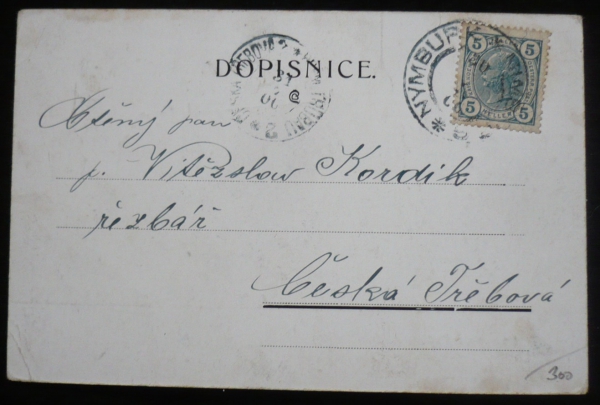 DOPISNICE.
NYMBURK
5 5
HELLER
5 5
Ctěný pan
p. Vítězslav Kordik
řezbář
Česká Třebová
300